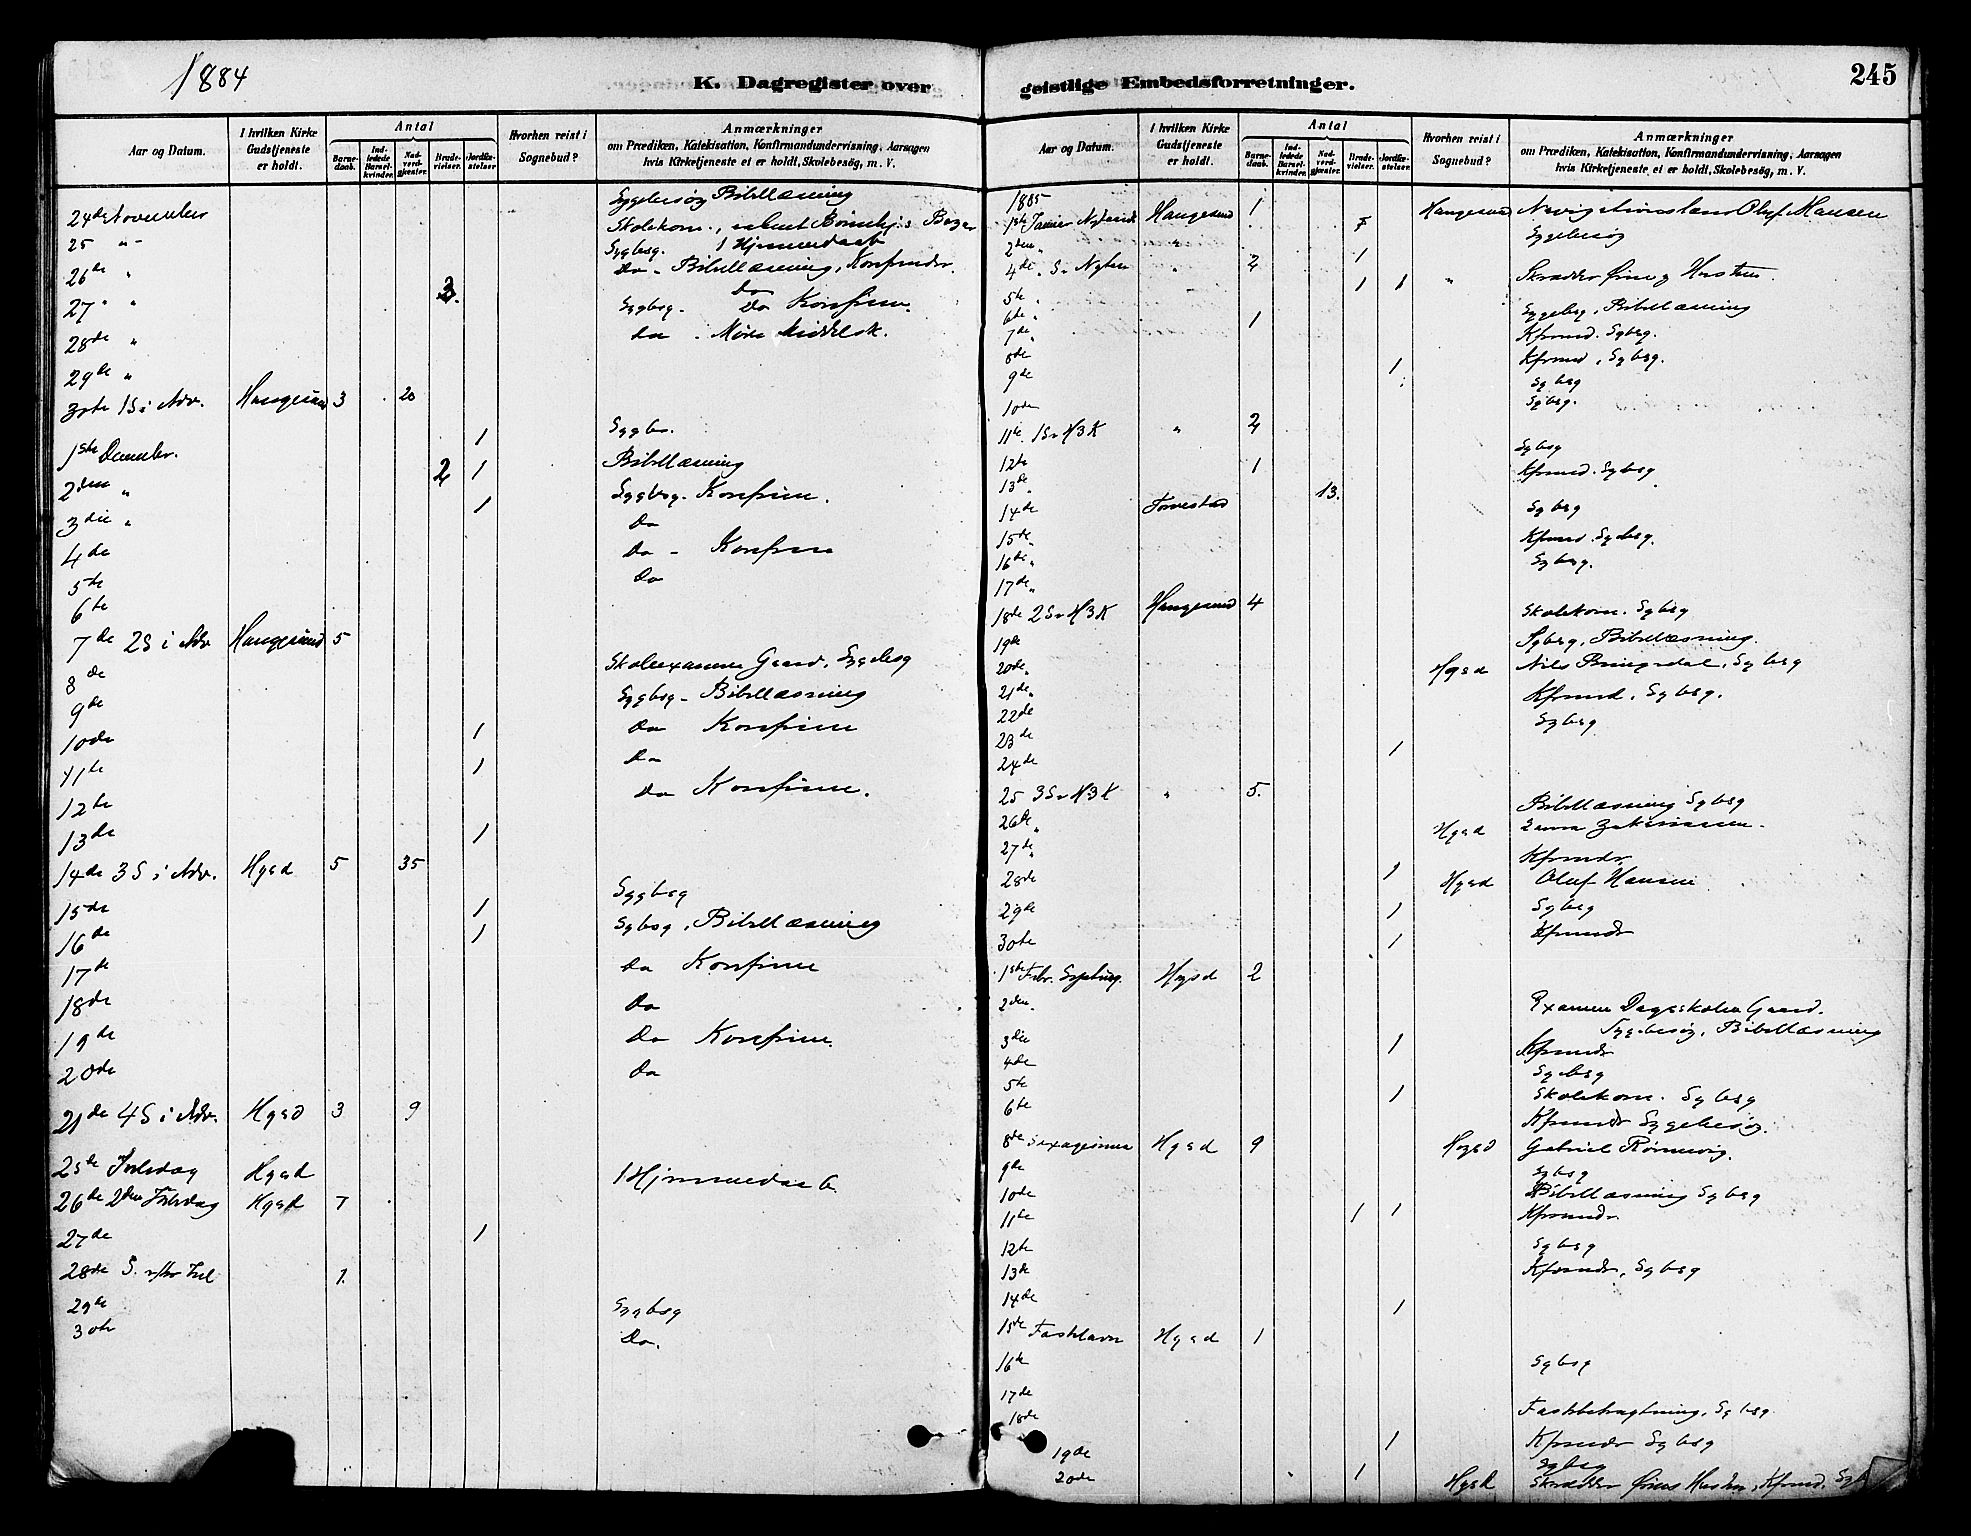 1884
K. Dagregister over
Aar og Datum.
I hvilken Kirke Gudstjeneste er holdt.
Antal
Barnedaab.
Indledede Barselkvinder.
Nadverdgjester.
Brudevielser.
Jordfæstelser
Hvorhen reist i Sognebud?
Anmærkninger
om Prædiken, Katekisation, Konfirmandundervisning, Aarsagen
hvis Kirketjeneste ei er holdt, Skolebesög, m. V.
24de November Sygebesøg Bibellæsning
25 " Skolekom.
Sygbsg. 1 Hjemmedaab
26de " Do - Bibellæsning, Konfirmder.
27 " 3. Sygbsg. Do Konfirm.
28de " Do .
29de "
30te 1S i Adv. Haugesund 3 20
1ste Decembr. 1 Sygbs.
2den " 2 1 Bibellæsning
3die " 1 Sygbsg. Konfirm.
4de Do
5te Do - Konfirm
6te Do
7de 2S i Adv Haugesund 5
8de Skoleexamen Gaard, Sygebsg
9de Sygbsg - Bibellæsning
10de 1 Do Konfirm
11te 1 Do
12te Do Konfirm.
13de 1
14de 3S i Adv. Hgsd 5 35
15de 1 Sygbsg
16de 1 Sgbsg, Bibellæsning
17de Do Konfirm
18de Do
19de Do Konfirm.
20de Do
21de 4S i Adv. Hgsd 3 9
25de Juledag Hgsd
26de 2den Juledag Hgsd 7 1 Hjemmedaab.
27de 1
28de S. efter Jul 1.
29de Sygbsg
30te Do.
geistlige Embedsforretninger.
245
Aar og Datum.
I hvilken Kirke Gudstjeneste er holdt.
Antal
Barnedaab.
Indledede Barselkvinder.
Nadverdgjester.
Brudevielser.
Jordfæstelser
Hvorhen reist i Sognebud?
Anmærkninger
om Prædiken, Katekisation, Konfirmandundervisning, Aarsagen
hvis Kirketjeneste ei er holdt, Skolebesög, m. V.
1885
1ste Januar Nytaarsd Haugesund 1 Haugesund Oluf Hansen
2den " Sygebesøg
4de S. Nytaar " 2 1
5te " 1 1 " Skrædder Hustru
6te " Sygebsg, Bibellæsning
7de " 1 Kfrmd. Sgbsg.
8de Kfrmd, Sgbsg.
9de 1 Sgbsg
10de Sgbsg.
11te 1S e H3K " 2
12te 1 Sgbsg
13de " Kfrmd. Sgbsg
14de Torvestad 13.
15de " Sgbsg
16de " Kfrmd. Sgbsg.
17de " Sgbsg.
18de 2S e H3K Haugesund 4
19de Skolekom. Sgbsg
20de " Sgbsg, Bibellæsning.
21de " Hgsd Nils Sgbsg
22de Kfrmd, Sgbsg.
23de Sgbsg
24de 1
25 3S e H3K " 5.
26de " Bibellæsning Sgbsg
27de " Hgsd
28de 1 Kfrmdr
Hgsd Oluf Hansen
29de 1 Sgbsg
30te 1 Kfrmdr
1ste Febr. Hgsd 2
2den Examen Dagsskolen Gaard.
3die Sygebesøg, Bibellæsning
4de 1 Kfrmdr
5te Sgbsg
6te 1 Skolekom. Sgbsg
Kfrmdr Sygebesøg.
8de Sexagesima Hgsd 9 Hgsd Gabriel
9de Sgbsg
10de Bibellæsning Sgbsg
11te 1 1 Kfrmdr.
12te Sgbsg
13de Kfrmdr, Sgbsg
14de 1
15de Fastelavn Hgsd 1
16de Sgbsg
17de
18de Fastebetragtning, Sgbsg.
19de 1 Kfrmdr Sgbsg
Sgbsg
20de 1 Hgsd Skrædder Hustru, Kfrmd.